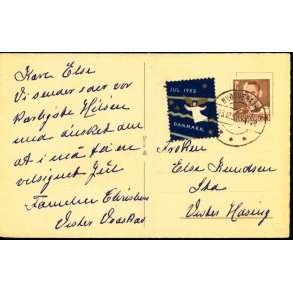 Kære Else
Vi sender eder vor
kærligste Hilsen
med ønsket om
at i må få en
velsignet Jul
Familien Christensen
Vester
JUL 1952
DANMARK
Frøken
Else Knudsen
Ida
Vester Hasing